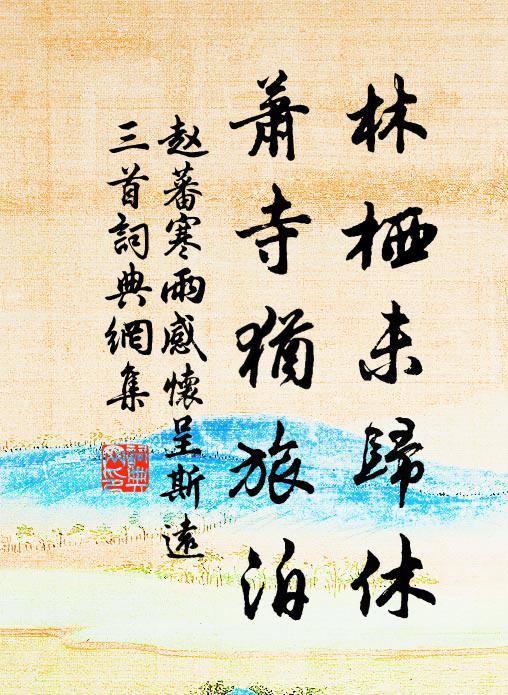 林栖未歸休
蕭寺猶旅泊
赵蕃寒雨感懷呈斯遠
三首詞典網集